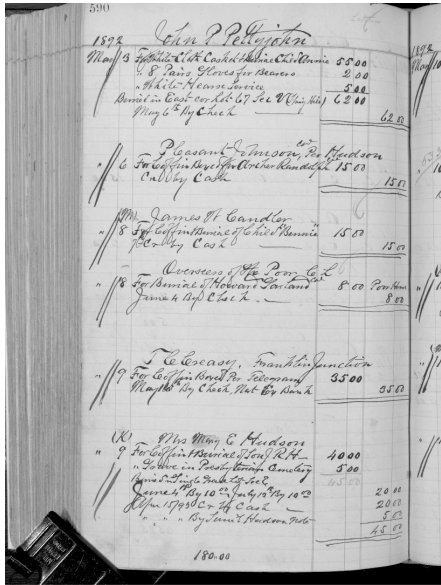 590
1892 John P Pettyjohn
May 3 For White Cloth Casket & Burial Child Annie 55 00
" 8 Pairs Gloves for Bearers 2 00
" White Hearse Service 5 00
Buried in East cor Lot 67 Sec 62 00
May 6th By Check 62 00
Pleasant Johnson, col Per Hudson
" 6 For Coffin Boxed for Archer Randolph 15 00
Cr by Cash 15 00
James W Candler
" 8 For Coffin Burial of Child Bennie 15 00
Cr by Cash 15 00
Overseers of the Poor C L
" 8 For Burial of Howard Garland col 8 00 Poor House
June 4 By Check 8 00
T C Creasey, Franklin Junction
" 9 For Coffin Boxed Per Telegram 35 00
May By Check, Nat Ex Bank 35 00
Mrs Mary E Hudson
" 9 For Coffin & Burial of Son R H 40 00
" Grave in Presbyterian Cemetery 5 00
45 00
June 4th By 10 00 July 19th By 10 00 20 00
Apr 15/93 Cr by Cash 20 00
" " " By Hudson Note 5 00
45 00
180.00